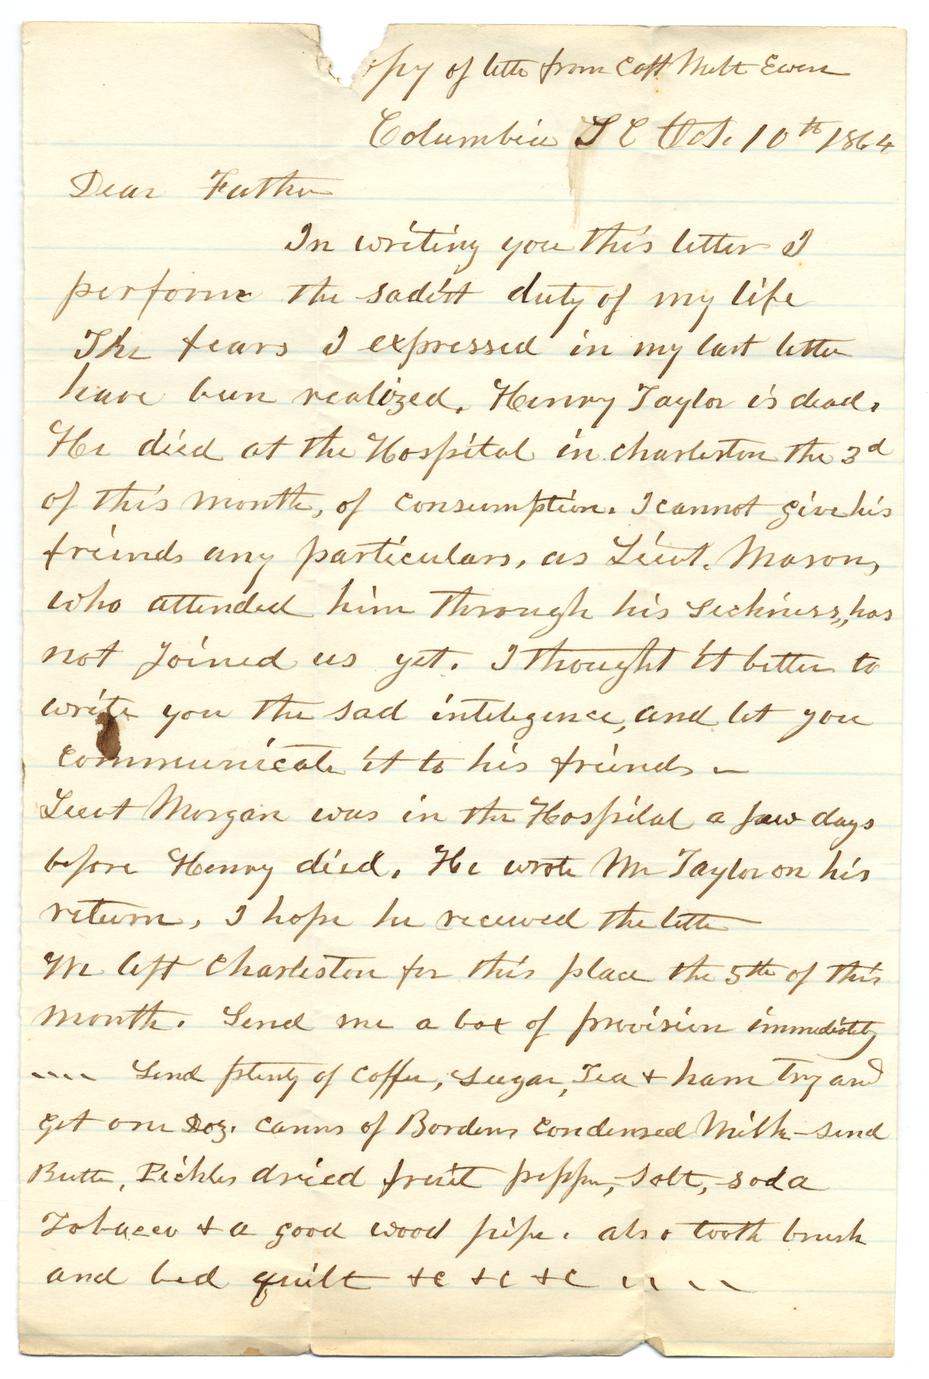 opy of lette from Capt Milt Ewen
Columbia S C Oct. 10th 1864
Dear Father
In writing you this letter I
perform the sadest duty of my life
The fears I expressed in my last letter
have been realized. Henry Taylor is dead.
He died at the Hospital in Charleston the 3d
of this month, of consumption. I cannot give his
friends any particulars, as Lieut. Mason,
who attended him through his sickness, has
not joined us yet. I thought it better to
write you the sad inteligence, and let you
communicate it to his friends —
Lieut Morgan was in the Hospital a few days
before Henry died. He wrote Mr Taylor on his
return, I hope he received the letter
We left Charleston for this place the 5th of this
month. Send me a box of provision immediately
---- Send plenty of Coffee, Sugar, Tea & ham Try and
get one Doz. canns of Bordens Condensed Milk - send
Butter, Pickles dried fruit pepper, Salt, soda
Tobacco & a good wood pipe. also tooth brush
and bed quilt &c &c &c